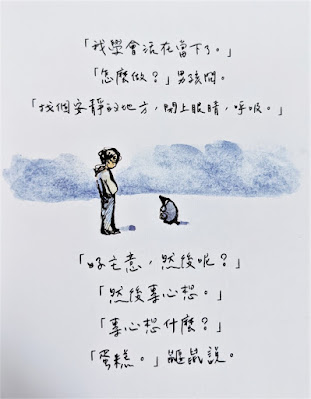 「我學會活在當下了。」
「怎麼做？」男孩問。
「找個安靜的地方，閉上眼睛，呼吸。」
「好主意，然後呢？」
「然後專心想。」
「專心想什麼？」
「蛋糕。」鼴鼠說。